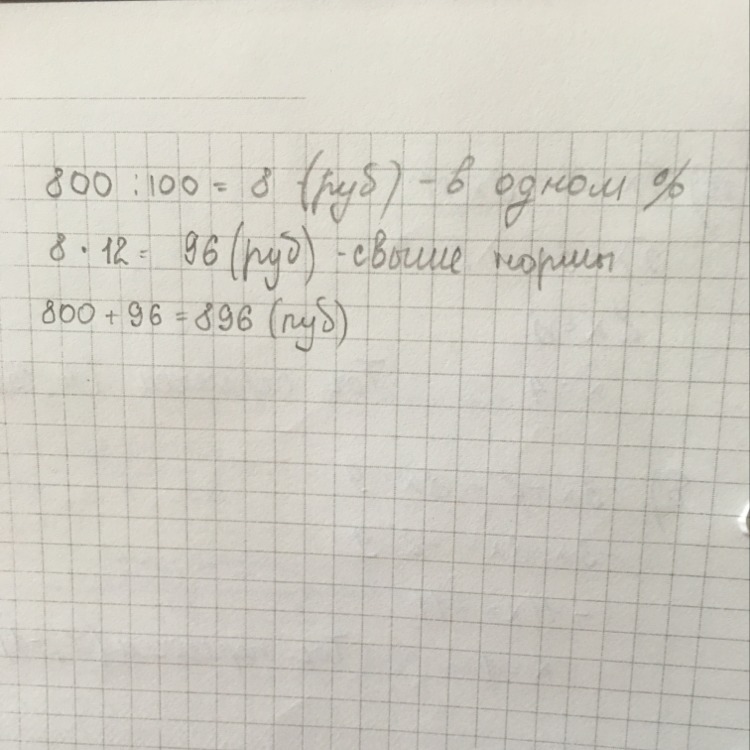 800 : 100 = 8 (руб) - в одном %
8 · 12 = 96 (руб) - свыше нормы
800 + 96 = 896 (руб)